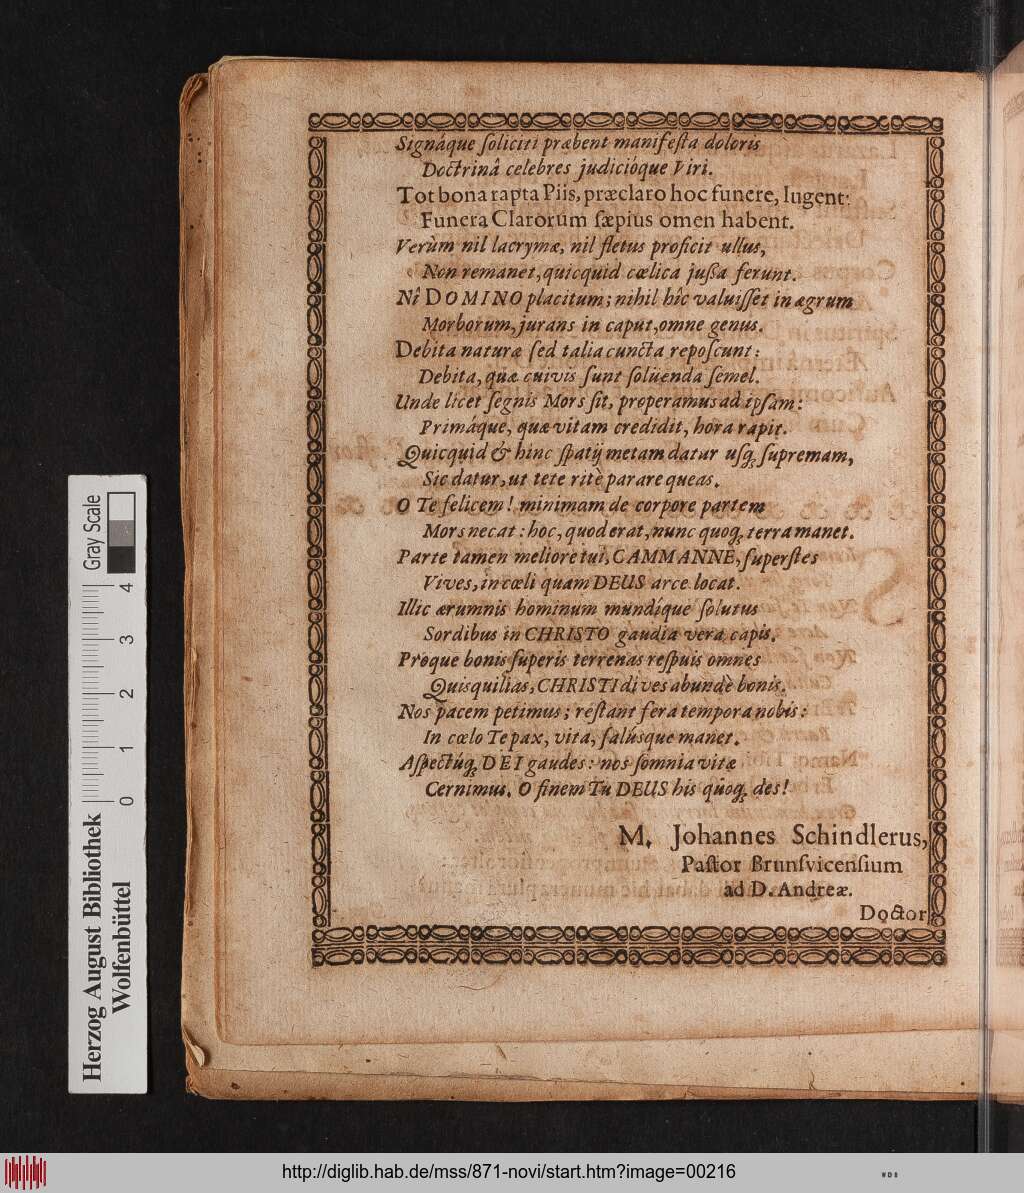 Signáque ſoliciti præbent manifeſta doloris
Doctrinâ celebres judicióque Viri.
Tot bona rapta Piis, præclaro hoc funere, lugent:
Funera Clarorum ſæpius omen habent.
Verùm nil lacrymæ, nil fletus proficit ullus,
Non remanet, quicquid cælica juſſa ferunt.
Nî DOMINO placitum; nihil hîc valuiſſet in ægrum
Morborum, jurans in caput, omne genus.
Debita naturæ ſed talia cuncta repoſcunt:
Debita, quæ cuivis ſunt ſolüenda ſemel.
Unde licet ſegnis Mors ſit, properamus ad ipſam:
Primáque, quæ vitam credidit, hora rapit.
Quicquid & hinc ſpatij metam datur uſq; ſupremam,
Sic datur, ut tete ritè parare queas.
O Te felicem! minimam de corpore partem
Mors necat: hoc, quod erat, nunc quoq; terra manet.
Parte tamen meliore tui, CAMMANNE, ſuperſtes
Vives, in cœli quam DEUS arce locat.
Illic ærumnis hominum mundíque ſolutus
Sordibus in CHRISTO gaudia vera capis.
Proque bonis ſuperis terrenas reſpuis omnes
Quisquilias, CHRISTI dives abundè bonis.
Nos pacem petimus; reſtant fera tempora nobis:
In cœlo Te pax, vita, ſalúsque manet.
Aſpectúq; DEI gaudes: nos ſomnia vitæ
Cernimus. O finem Tu DEUS his quoq; des!
M. Johannes Schindlerus,
Paſtor Brunſvicenſium
ad D. Andreæ.
Doctor
Gray Scale
4
3
2
1
0
Herzog August Bibliothek
Wolfenbüttel
http://diglib.hab.de/mss/871-novi/start.htm?image=00216